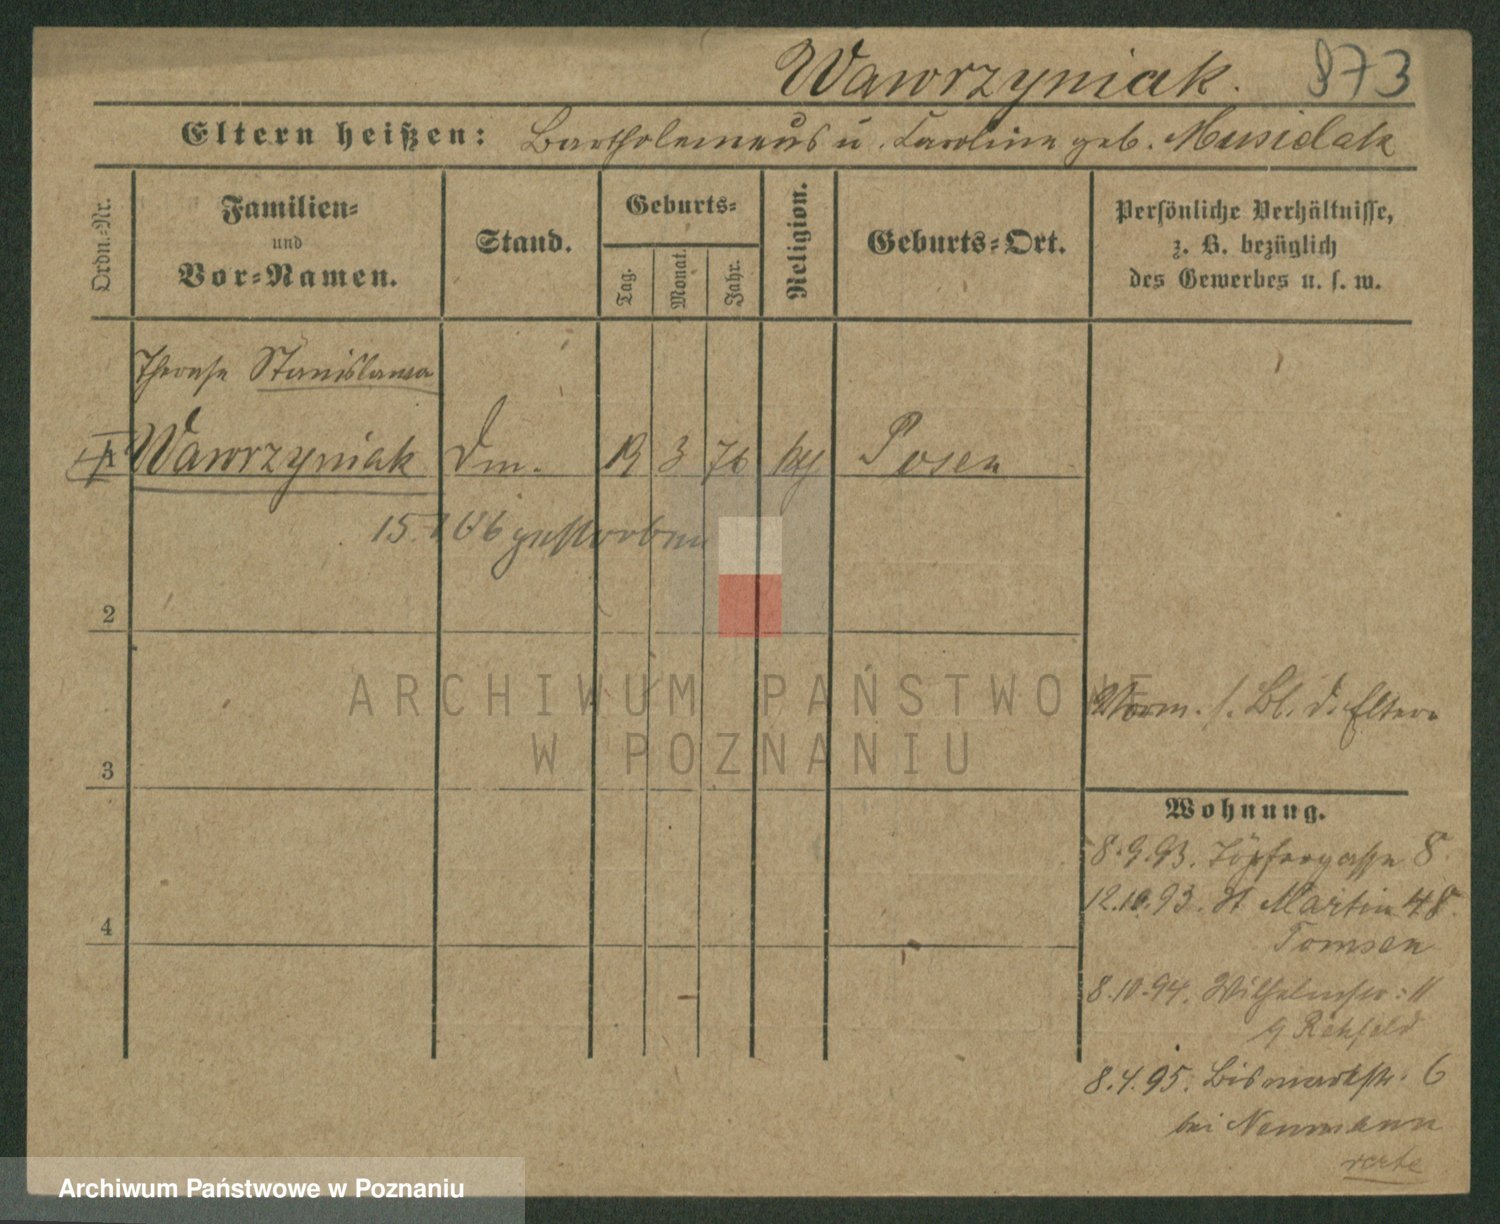 Wawrzyniak. 873
Eltern heißen: Bartholemeus u. Caroline geb. Musielak
Ordn.-Nr.
Familien-
und
Vor-Namen.
Stand.
Geburts-
Tag.
Monat.
Jahr.
Religion.
Geburts-Ort.
Persönliche Verhältnisse,
z. B. bezüglich
des Gewerbes u. s. w.
Therese Stanislawa
1 Wawrzyniak Dm. 19 3 76 Posen
gestorben
2
ARCHIWUM PAŃSTWOWE
W POZNANIU
Norm. s. Bl. d. Eltern
3
Wohnung.
8.9.93. Töpfergasse 8.
12.10.93. St Martin 48.
Tomsen
4
8.10.94. Wilhelmstr: 11
Rehfeld
8.4.95. Bismarckstr. 6
bei Neumann
verte
Archiwum Państwowe w Poznaniu